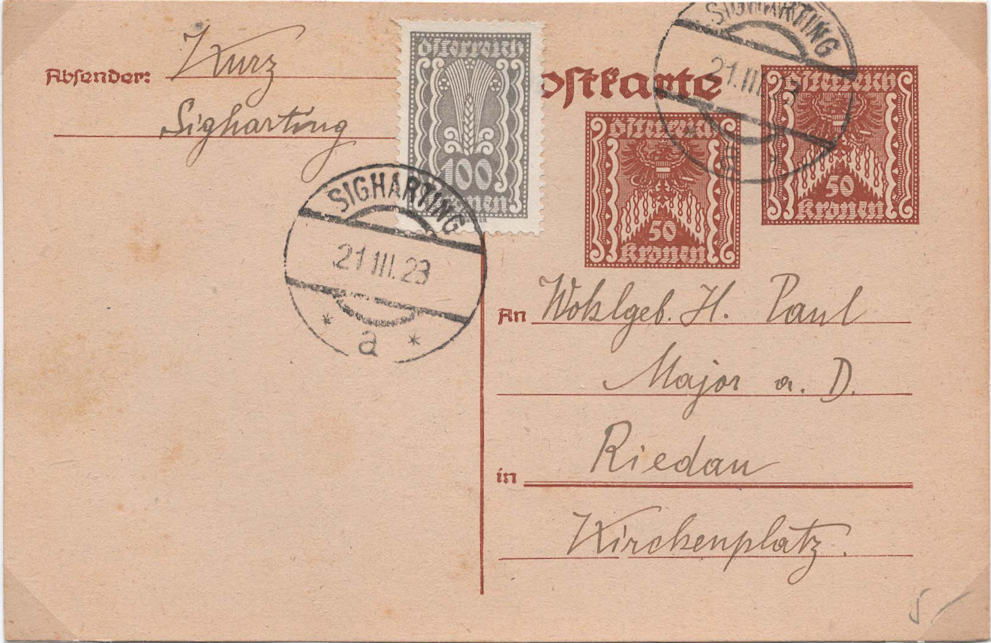 Absender: Kurz
Sigharting
Österreich
100
Kronen
Postkarte
Österreich
50
Kronen
Österreich
50
Kronen
SIGHARTING
21.III.23
a
SIGHARTING
21.III.23
a
An Wohlgeb. H. Paul
Major a. D.
in Riedau
Kirchenplatz.
5